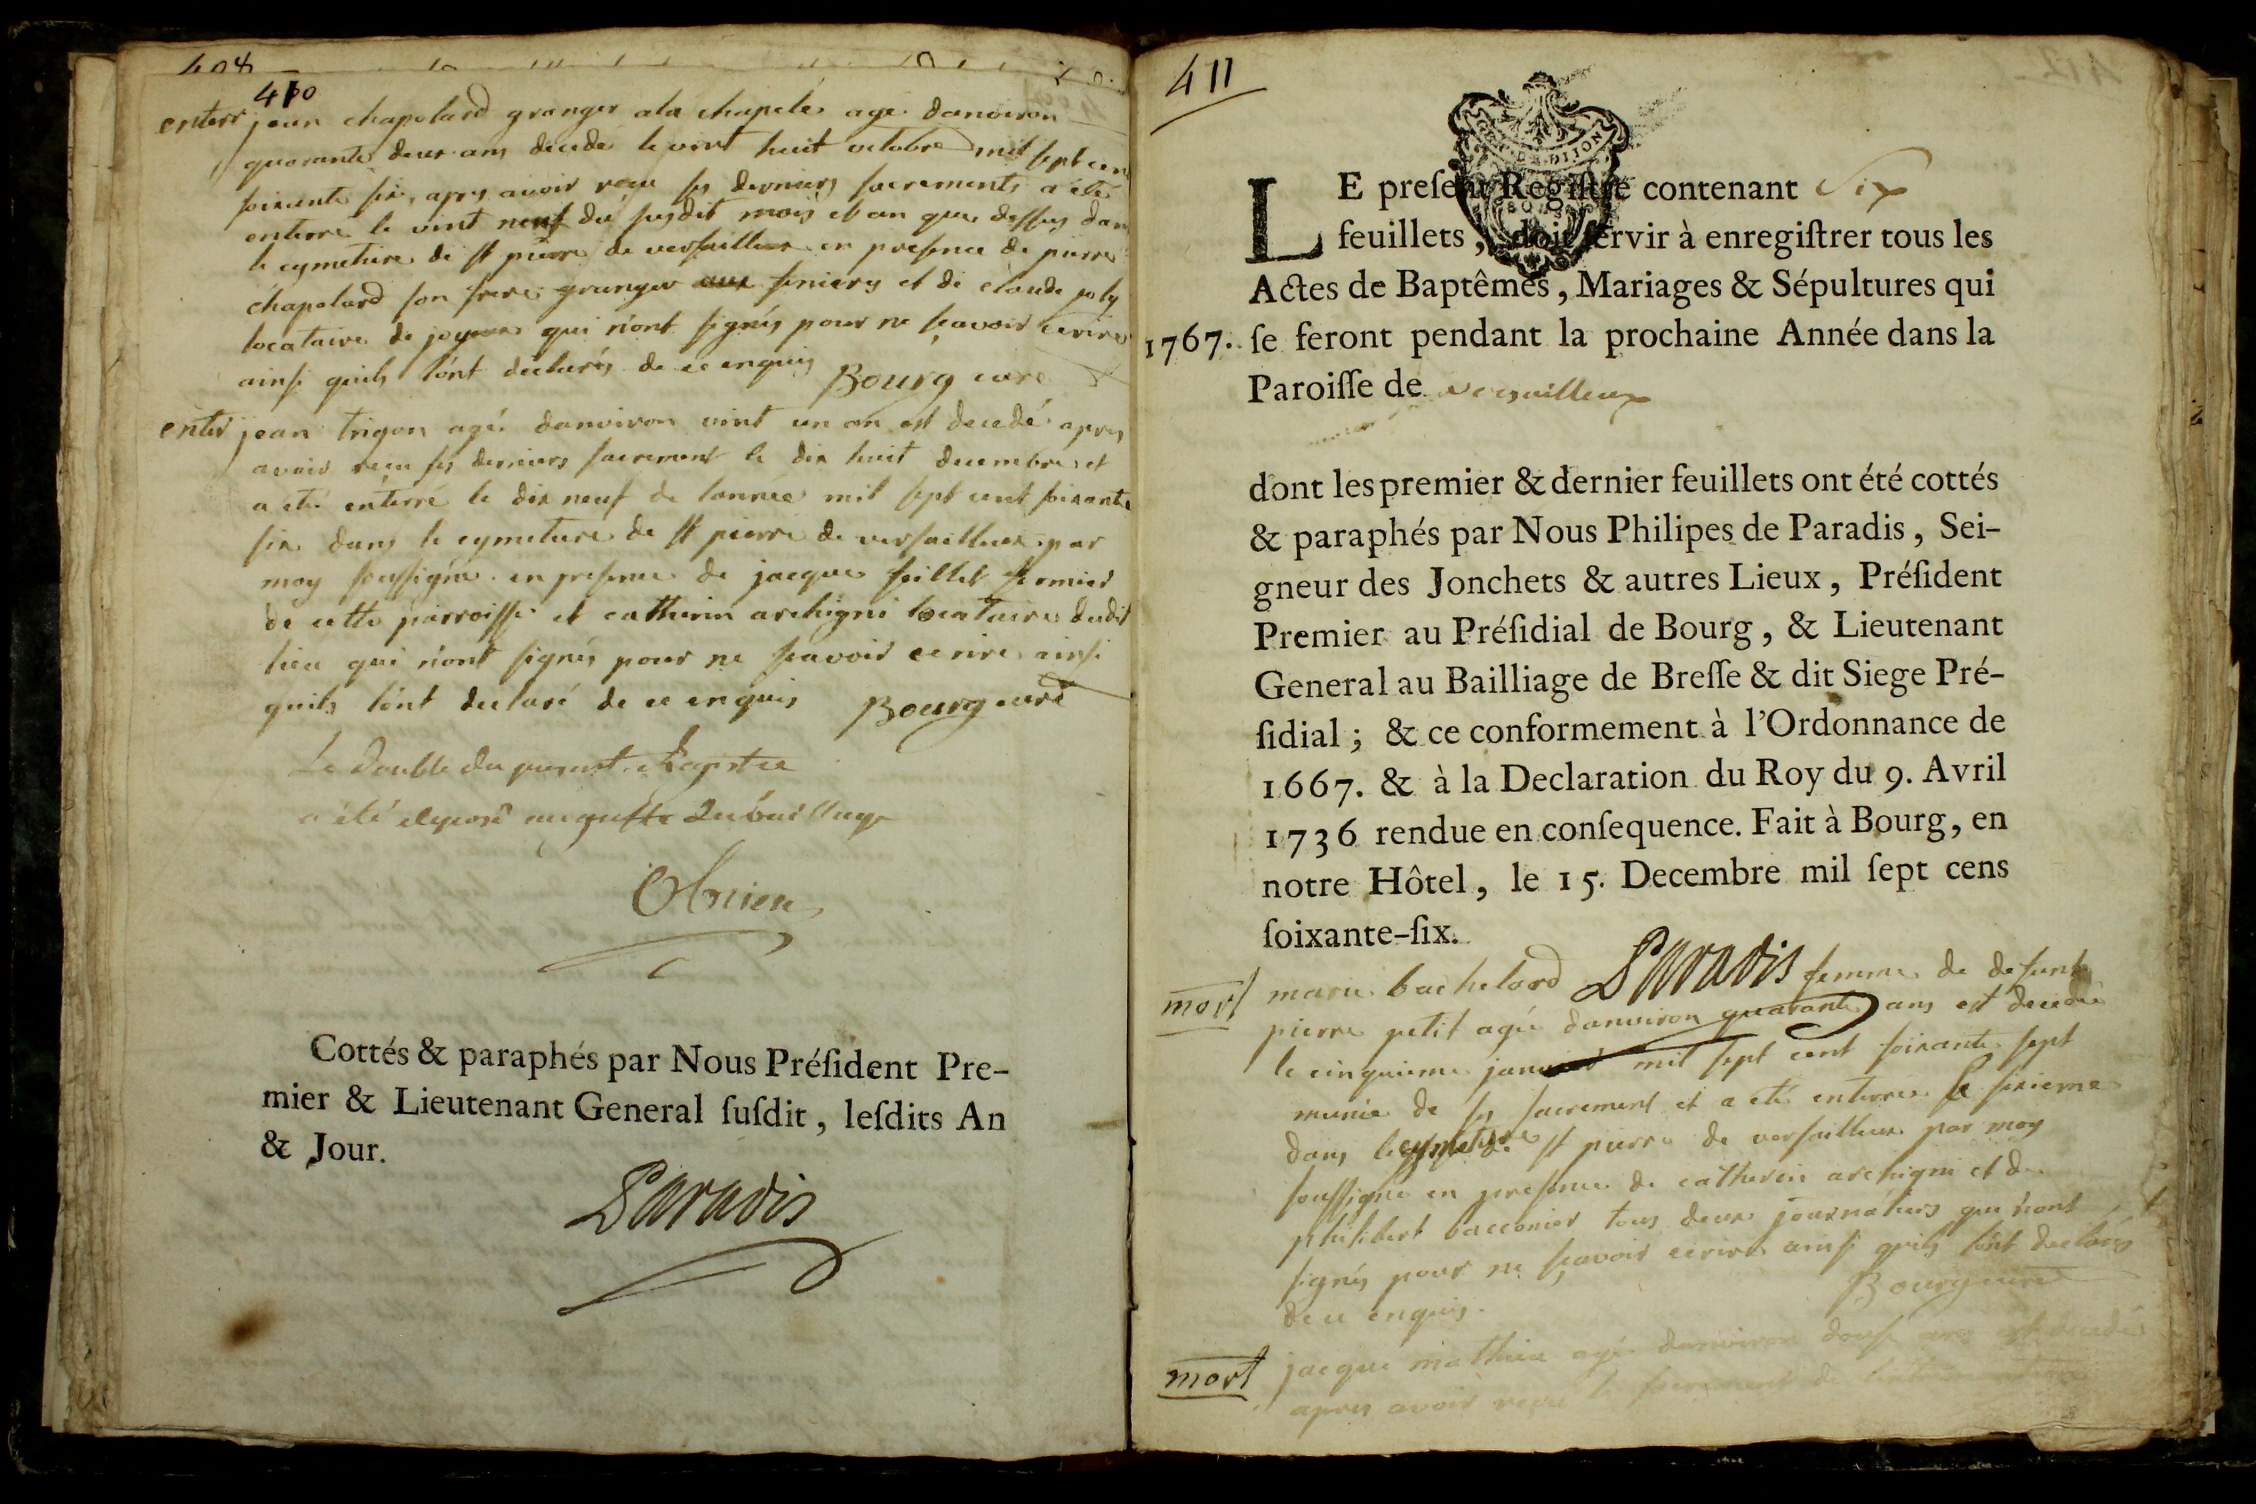 408
410
enterr jean chapelard granger ala chapele agé danviron
quarante deux ans decedé le vint huit octobre mil sept cen
soixante six, apres avoir reçu ses derniers sacrements a eté
enterré le vint neuf du susdit mois et an que dessus dans
le cymetiere de st pierre de versailleux en presence de pierre
chapelard son frere granger aux feniers et de claude joly
locataire de joyeux qui n'ont signés pour ne sçavoir ecrire
ainsi quils lont declarés de ce enquis Bourg curé
enterr jean trigon agé danviron vint un an est decedé apres
avoir reçu ses derniers sacrement le dix huit decembre et
a eté enterré le dix neuf de lannée mil sept cent soixante
six dans le cymetiere de st pierre de versailleux par
moy soussigné en presence de jacque feillet fermier
de cette parroisse et catherin archigni locataire dudit
lieu qui n'ont signés pour ne sçavoir ecrire ainsi
quils lont declaré de ce enquis Bourg curé
Le double du present Registre
a été deposé au greffe du bailliage
Cottés & paraphés par Nous Préſident Pre-
mier & Lieutenant General ſuſdit, leſdits An
& Jour.
Paradis
411
GEN. DE DIJON
LE preſent Regiſtre contenant Six
feuillets, doit ſervir à enregiſtrer tous les
Actes de Baptêmes, Mariages & Sépultures qui
1767. ſe feront pendant la prochaine Année dans la
Paroiſſe de versailleux
dont les premier & dernier feuillets ont été cottés
& paraphés par Nous Philipes de Paradis, Sei-
gneur des Jonchets & autres Lieux, Préſident
Premier au Préſidial de Bourg, & Lieutenant
General au Bailliage de Breſſe & dit Siege Pré-
ſidial; & ce conformement à l'Ordonnance de
1667. & à la Declaration du Roy du 9. Avril
1736 rendue en conſequence. Fait à Bourg, en
notre Hôtel, le 15. Decembre mil ſept cens
ſoixante-ſix.
Paradis
mort marie bachelard femme de defunt
pierre petit agée danviron quarante ans est decedée
le cinquieme janvier mil sept cent soixante sept
munie de ses sacrement et a eté enterrée le sixieme
dans le cymetiere st pierre de versailleux par moy
soussigné en presence de catherin archigni et de
philibert bacconier tous deux journaliers qui n'ont
signés pour ne sçavoir ecrire ainsi quils lont declarés
de ce enquis. Bourg curé
mort jacque mathieu agé danviron douse ans est decedé
apres avoir reçu le sacrement de